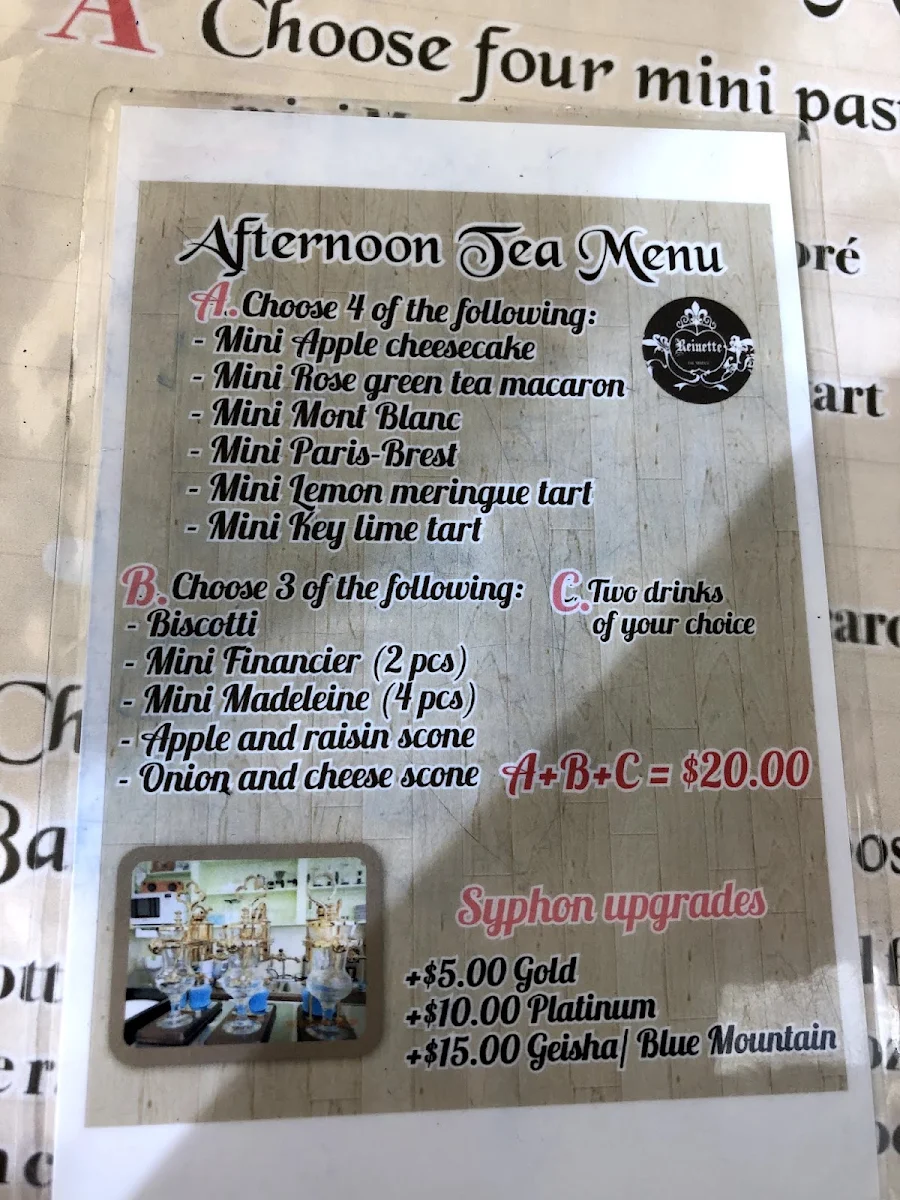 A Choose four mini
Afternoon Tea Menu
A. Choose 4 of the following:
- Mini Apple cheesecake
- Mini Rose green tea macaron
- Mini Mont Blanc
- Mini Paris-Brest
- Mini Lemon meringue tart
- Mini Key lime tart
Reinette
B. Choose 3 of the following:
- Biscotti
- Mini Financier (2 pcs)
- Mini Madeleine (4 pcs)
- Apple and raisin scone
- Onion and cheese scone
C. Two drinks
of your choice
A+B+C = $20.00
Syphon upgrades
+$5.00 Gold
+$10.00 Platinum
+$15.00 Geisha/ Blue Mountain